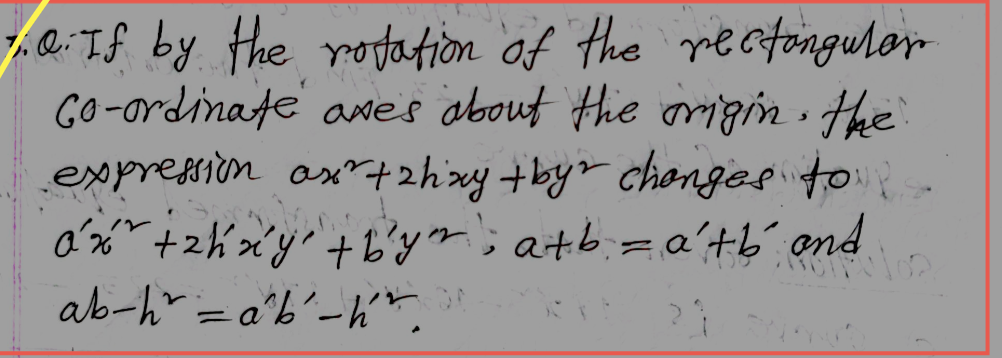 Q. If by the rotation of the rectangular
Co-ordinate axes about the origin, the
expression ax²+2hxy+by² changes to
a'x'²+2h'x'y'+b'y'², a+b=a'+b' and
ab-h²=a'b'-h'².